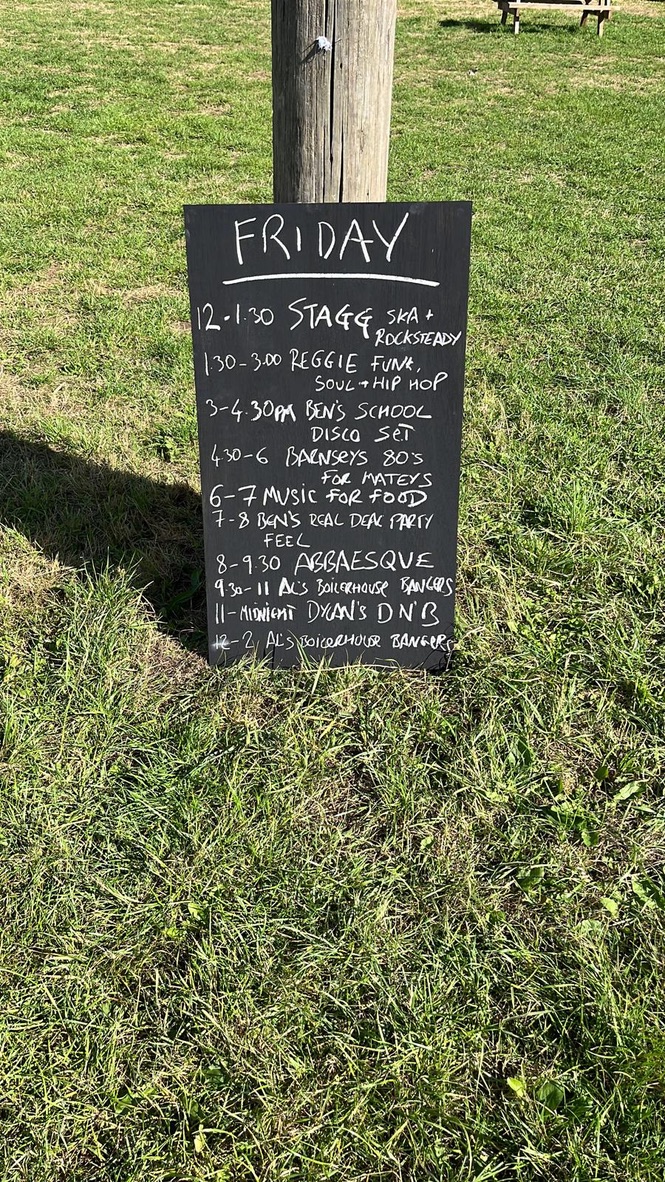 FRIDAY
12-1.30 STAGG SKA +
ROCKSTEADY
1.30-3.00 REGGIE FUNK,
SOUL + HIP HOP
3-4.30PM BEN'S SCHOOL
DISCO SET
4.30-6 BARNSEYS 80'S
FOR MATEYS
6-7 MUSIC FOR FOOD
7-8 BEN'S REAL DEAL PARTY
FEEL
8-9.30 ABBAESQUE
9.30-11 AL'S BOILERHOUSE BANGERS
11-MIDNIGHT DYLAN'S DN'B
12-2 AL'S BOILERHOUSE BANGERS